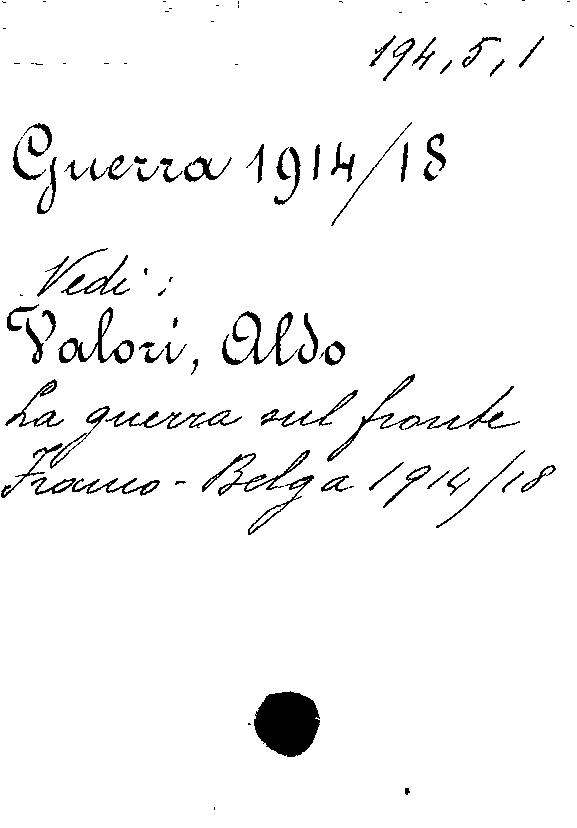 194,5,1
Guerra 1914/18
Vedi:
Valori, Aldo
La guerra sul fronte
Franco-Belga 1914/18